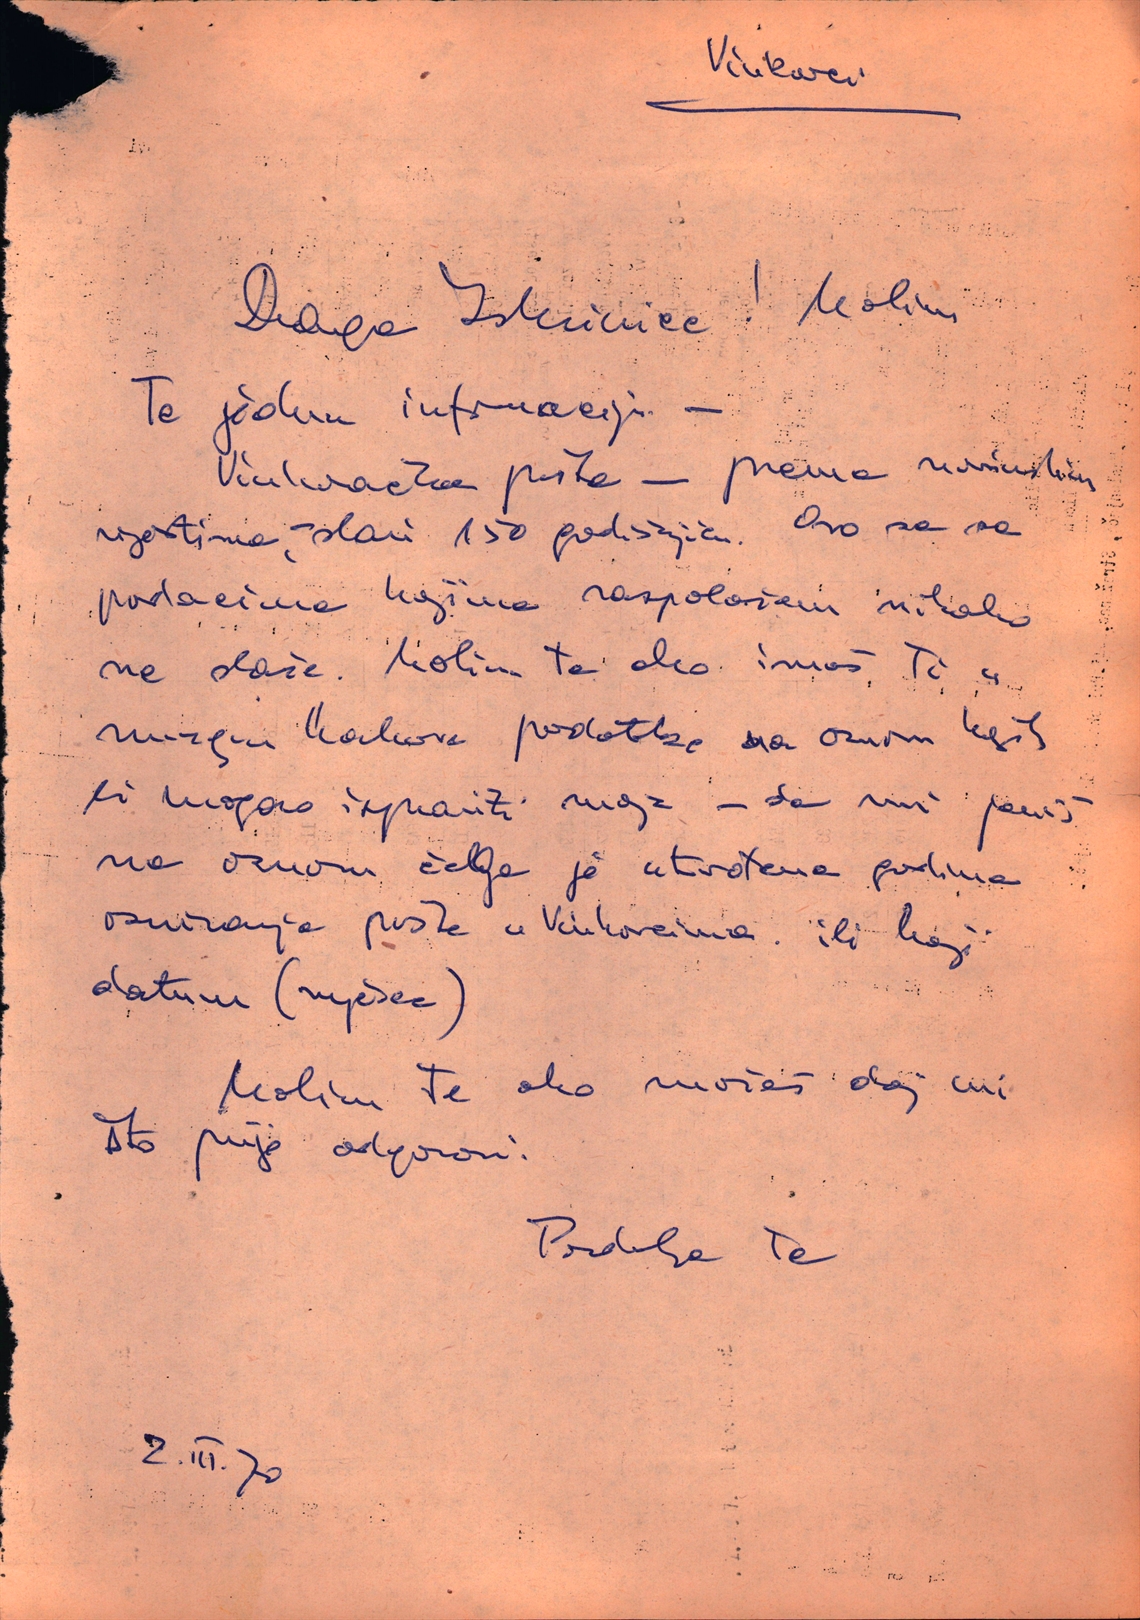 Vinkovci
Draga Iskrinice! Molim
Te jednu informaciju —
Vinkovačka pošta — prema novinskim
vijestima, slavi 150 godišnjicu. Ovo se sa
podacima kojima raspolažem nikako
ne slaže. Molim te ako imaš Ti u
muzeju kakove podatke na osnovu kojih
bi mogao ispraviti moje — da mi javiš
na osnovu čega je utvrđena godina
osnivanja pošte u Vinkovcima. ili koji
datum (mjesec)
Molim Te ako možeš daj mi
što prije odgovori.
Pozdravlja Te
2.III.70